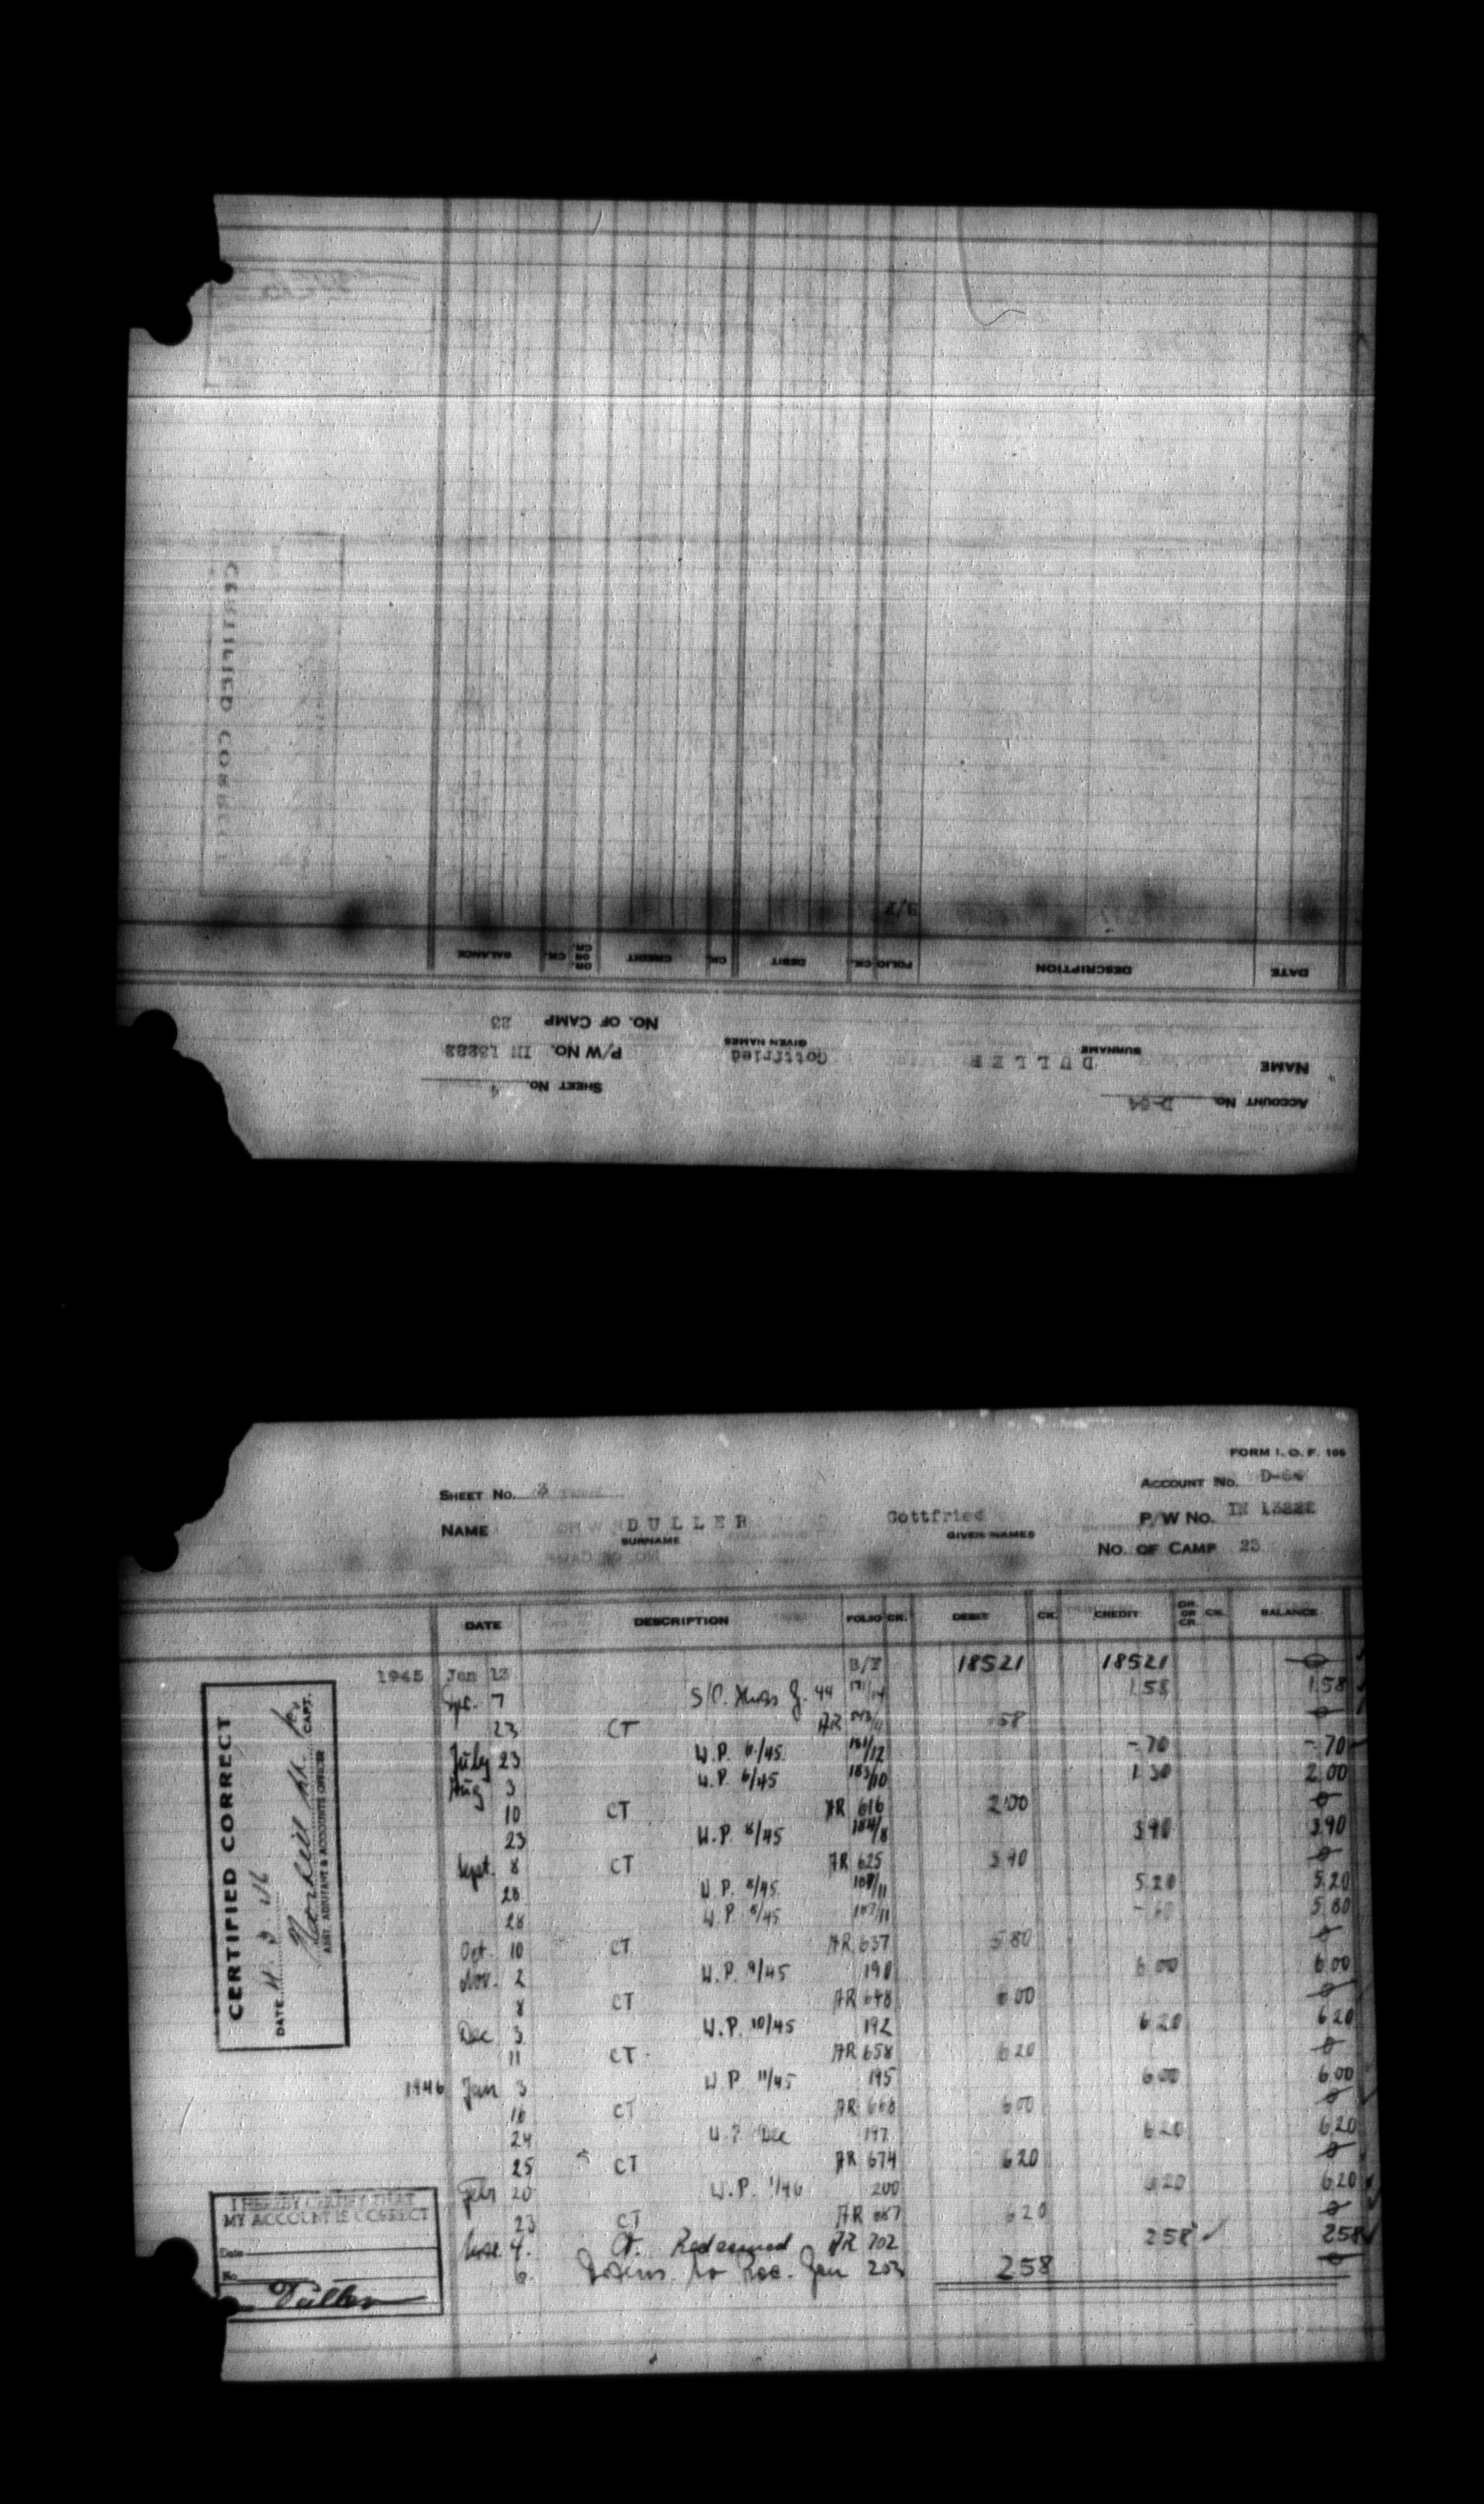 CERTIFIED CORRECT
B/F
DATE DESCRIPTION FOLIO CK. DEBIT CK. CREDIT DR. OR CR. CK. BALANCE
NO. OF CAMP 23
NAME DULLER Gottfried P/W NO. IN
SURNAME GIVEN NAMES
ACCOUNT NO. D-64 SHEET NO. 4
FORM I. O. F. 106
SHEET NO. 3 ACCOUNT NO. D-64
NAME DULLER Gottfried P/W NO. IN
SURNAME GIVEN NAMES
NO. OF CAMP 23
DATE DESCRIPTION FOLIO CK. DEBIT CK. CREDIT DR. OR CR. CK. BALANCE
1945 Jan 13 B/F 18521 18521 0
7 S/O. 44 1.58 1.58
23 CT AR 0
July 23 W.P. 6/45 -.70 -.70
Aug 3 W.P. 6/45 183/10 1 30 2.00
10 CT AR 616 2.00 0
23 W.P. 8/45 184/8 3.90 3.90
Sept. 8 CT AR 625 3.90 0
28 W.P. 8/45 5.20 5.20
28 W.P. 8/45 5.80
Oct. 10 CT AR 637 5.80 0
Nov. 2 W.P. 9/45 190 6.00 6.00
8 CT AR 648 6.00 0
Dec 3 W.P. 10/45 192 6.20 6.20
11 CT AR 658 6.20 0
1946 Jan 3 W.P. 11/45 195 6.00 6.00
16 CT AR 668 6.00 0
24 W.P. Dec 197 6.20 6.20
25 CT AR 674 6.20 0
Feb 20 W.P. 1/46 200 6.20 6.20
23 CT AR 687 6.20 0
4. CT. Redeemed AR 702 2.58 2.58
6. 203 2.58 0
CERTIFIED CORRECT
DATE
CAPT.
ASST. ADJUTANT & ACCOUNTS OFFICER
I HEREBY CERTIFY THAT
MY ACCOUNT IS CORRECT
Date
No
Duller